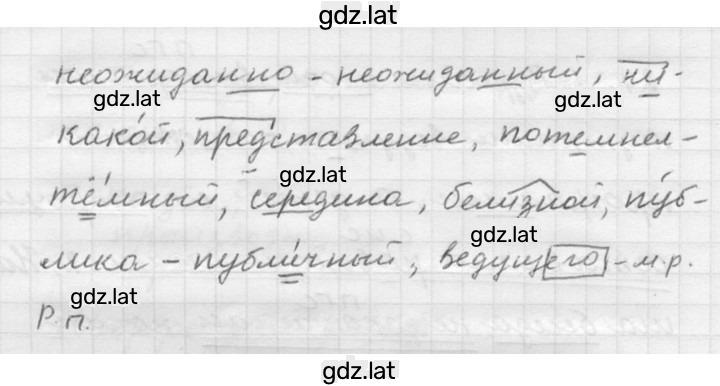 gdz.lat
неожиданно - неожиданный, ни-
gdz.lat gdz.lat
какой, представление, потемнел -
gdz.lat
тёмный, середина, белизной, пуб-
gdz.lat
лика - публичный, ведущего - м.р.
gdz.lat
Р.п.
gdz.lat